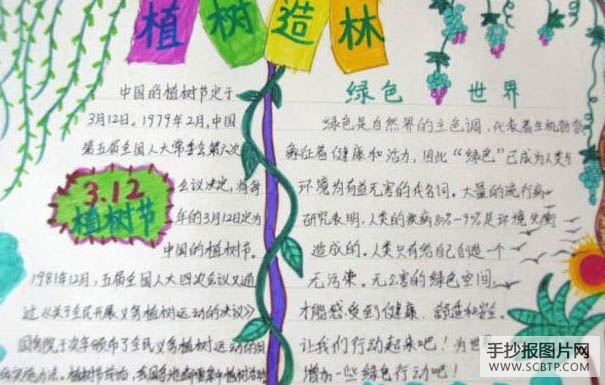 植树造林
中国的植树节定于
3月12日。1979年2月,中国
第五届全国人大常委会第六次
会议决定,将每
年的3月12日定为
中国的植树节。
3.12
植树节
1981年12月,五届全国人大四次会议又通
过《关于全民开展义务植树运动的决议》
国务院于次年颁布了全民义务植树运动的
实施办法。植树节前后,
绿色 世界
绿色是自然界的主色调,代表着生机勃勃
象征着健康和活力,因此“绿色”已成为人类与
环境均有益无害的代名词。大量的流行病
研究表明,人类的疾病 %-9%是环境
造成的。人类只有给自己创造一个
无污染。无公害的绿色空间,
才能感受到健康、舒适和
让我们行动起来吧!为世
增加一些绿色行动吧!
手抄报图片网
WWW.SCBTP.COM